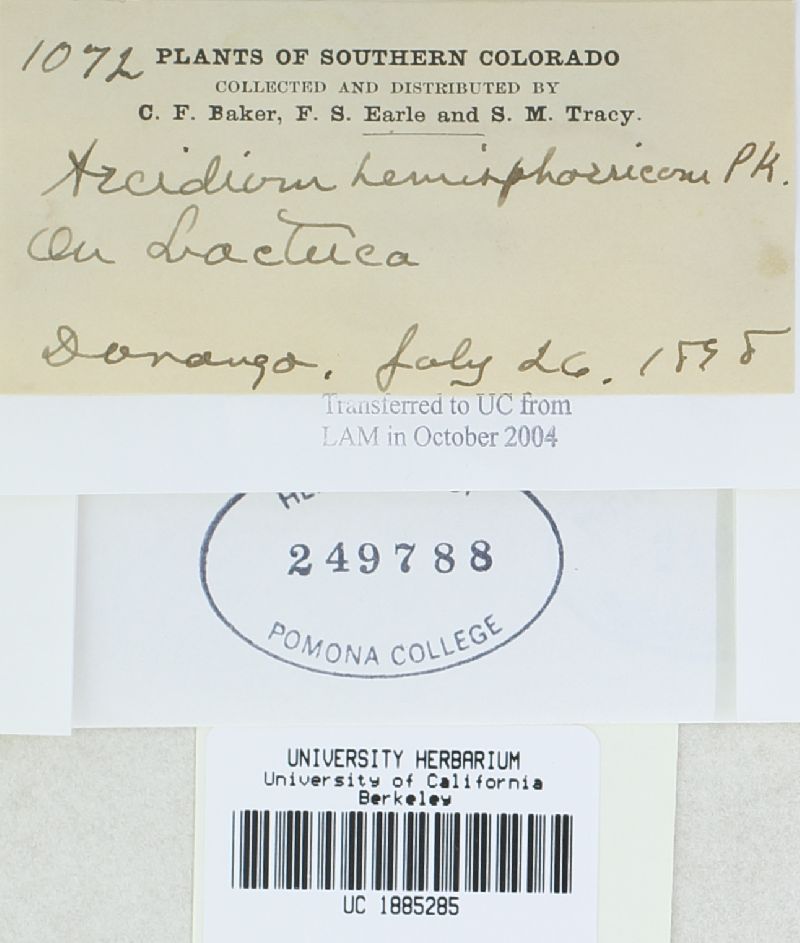 1072 PLANTS OF SOUTHERN COLORADO
COLLECTED AND DISTRIBUTED BY
C. F. Baker, F. S. Earle and S. M. Tracy.
Aecidium hemisphaericum Pk.
On Lactuca
Durango. July 26. 1898
Transferred to UC from
LAM in October 2004
249788
POMONA COLLEGE
UNIVERSITY HERBARIUM
University of California
Berkeley
UC 1885285